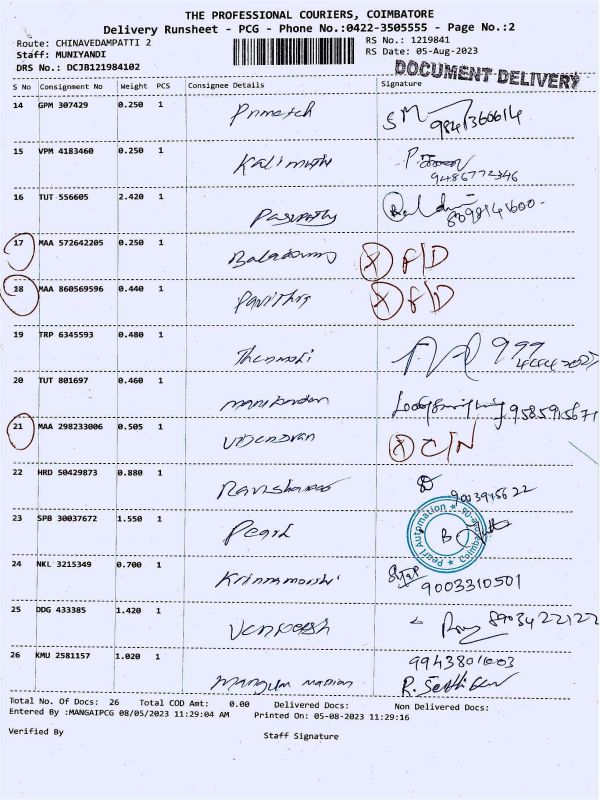 THE PROFESSIONAL COURIERS, COIMBATORE
Delivery Runsheet - PCG - Phone No.:0422-3505555 - Page No.:2
Route: CHINAVEDAMPATTI 2 RS No.: 1219841
Staff: MUNIYANDI RS Date: 05-Aug-2023
DRS No.: DCJB121984102 DOCUMENT DELIVERY
S No Consignment No Weight PCS Consignee Details Signature
14 GPM 307429 0.250 1
15 VPM 4183460 0.250 1 Kalimuthu
9486772346
16 TUT 556605 2.420 1 Pasupathy
17 MAA 572642205 0.250 1 F/D
18 MAA 860569596 0.440 1 Pavithra F/D
19 TRP 6345593 0.480 1 Thenmoli 999
20 TUT 801697 0.460 1 Manikandan
21 MAA 298233006 0.505 1 C/N
22 HRD 50429873 0.880 1
9003945622
23 SPB 30037672 1.550 1 Pearl Pearl Automation Coimbatore
24 NKL 3215349 0.700 1
9003310501
25 DDG 433385 1.420 1 Venkatesh
26 KMU 2581157 1.020 1
Total No. Of Docs: 26 Total COD Amt: 0.00 Delivered Docs: Non Delivered Docs:
Entered By :MANGAIPCG 08/05/2023 11:29:04 AM Printed On: 05-08-2023 11:29:16
Verified By Staff Signature